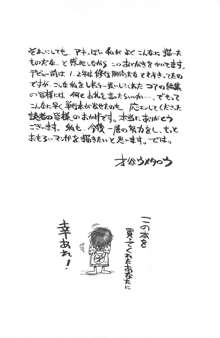 それにしても、アホっぽい私が よくこんなに描った
ものだな…と 感心しながら このあとがきをかいてます。
デビュー前は 1、2年は修行期間だな と思ってたの
ですが こんな私をしたら一致いてくれた コアの編集
の皆様には 何とお礼を言ったらいいか…でもって
こんなに早く単行本が出せたのも、応えんしてくださった
読者の皆様のおかげです。本当にありがとう
ございます。私も、今後一層の努力をし、もっと
おもろいマンガを描きたいと思います。では…
この本を
買ってくれたあなたに
幸あれ!